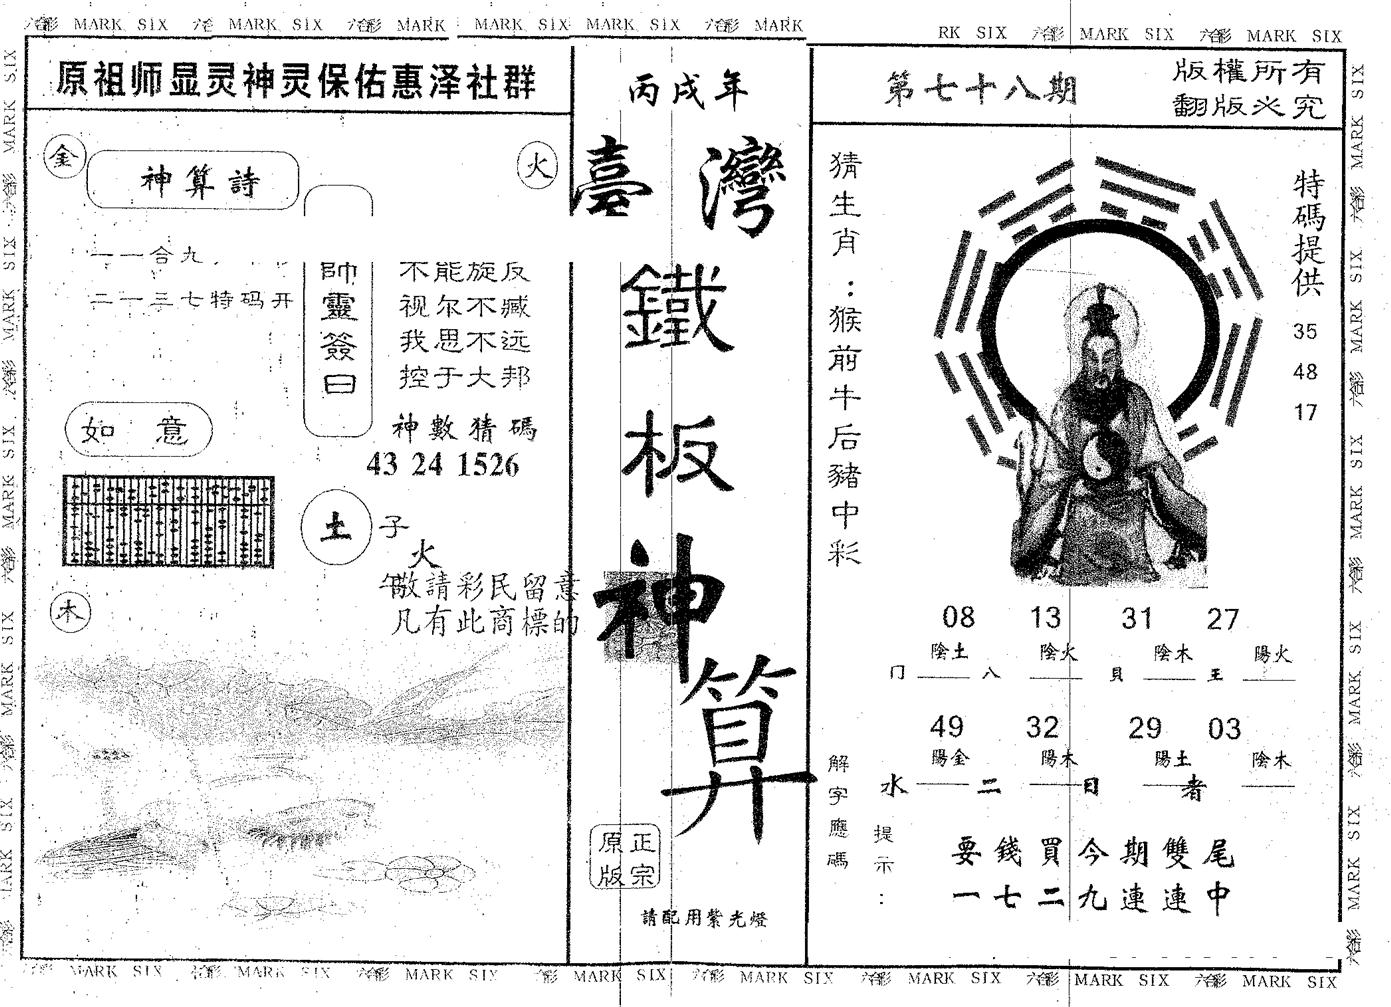 MARK SIX 六合彩 MARK SIX 六合彩 MARK SIX 六合彩 MARK
RK SIX 六合彩 MARK SIX 六合彩 MARK SIX
原祖师显灵神灵保佑惠泽社群
金
神算詩
火
一一合九
二一三七特码开
帥靈簽曰
不能旋反
视尔不臧
我思不远
控于大邦
神數猜碼
43 24 1526
如 意
土
子
火
午
敬請彩民留意
凡有此商標的
木
丙戌年
臺灣
鐵板神算
正宗
原版
請配用紫光燈
第七十八期
版權所有
翻版必究
猜生肖：猴前牛后豬中彩
特碼提供
35
48
17
08 13 31 27
陰土 陰火 陰木 陽火
门 八 貝 王
49 32 29 03
陽金 陽木 陽土 陰木
水 二 日 者
解字應碼
提示：
要錢買今期雙尾
一七二九連連中
MARK SIX 六合彩 MARK SIX 六合彩 MARK SIX 六合彩 MARK SIX 六合彩 MARK SIX 六合彩 MARK SIX 六合彩 MARK SIX 六合彩 MARK SIX